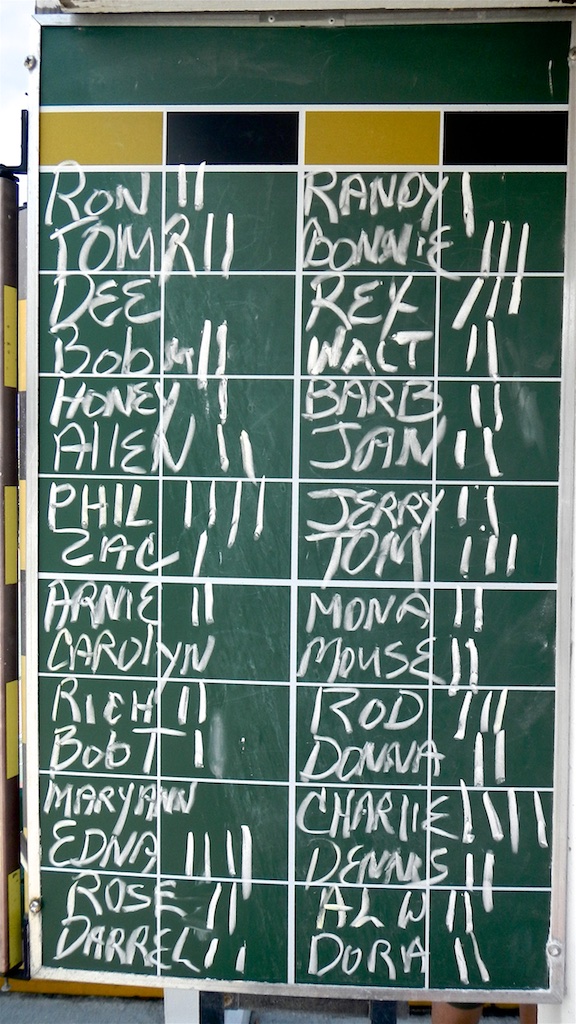 RON II
RANDY I
TOM R II
BONNIE III
DEE
REX III
Bob M II
WALT II
HONEY I
BARB II
AllEN II
JAN II
PHIL IIII
JERRY II
ZAC I
TOM III
ARNIE II
MONA II
CAROlYN
MOUSE II
RICH II
ROD III
Bob T I
DONNA II
MARYANN
CHARlIE IIII
EDNA IIII
DENNIS II
ROSE II
AL W II
DARREL II
DORA II